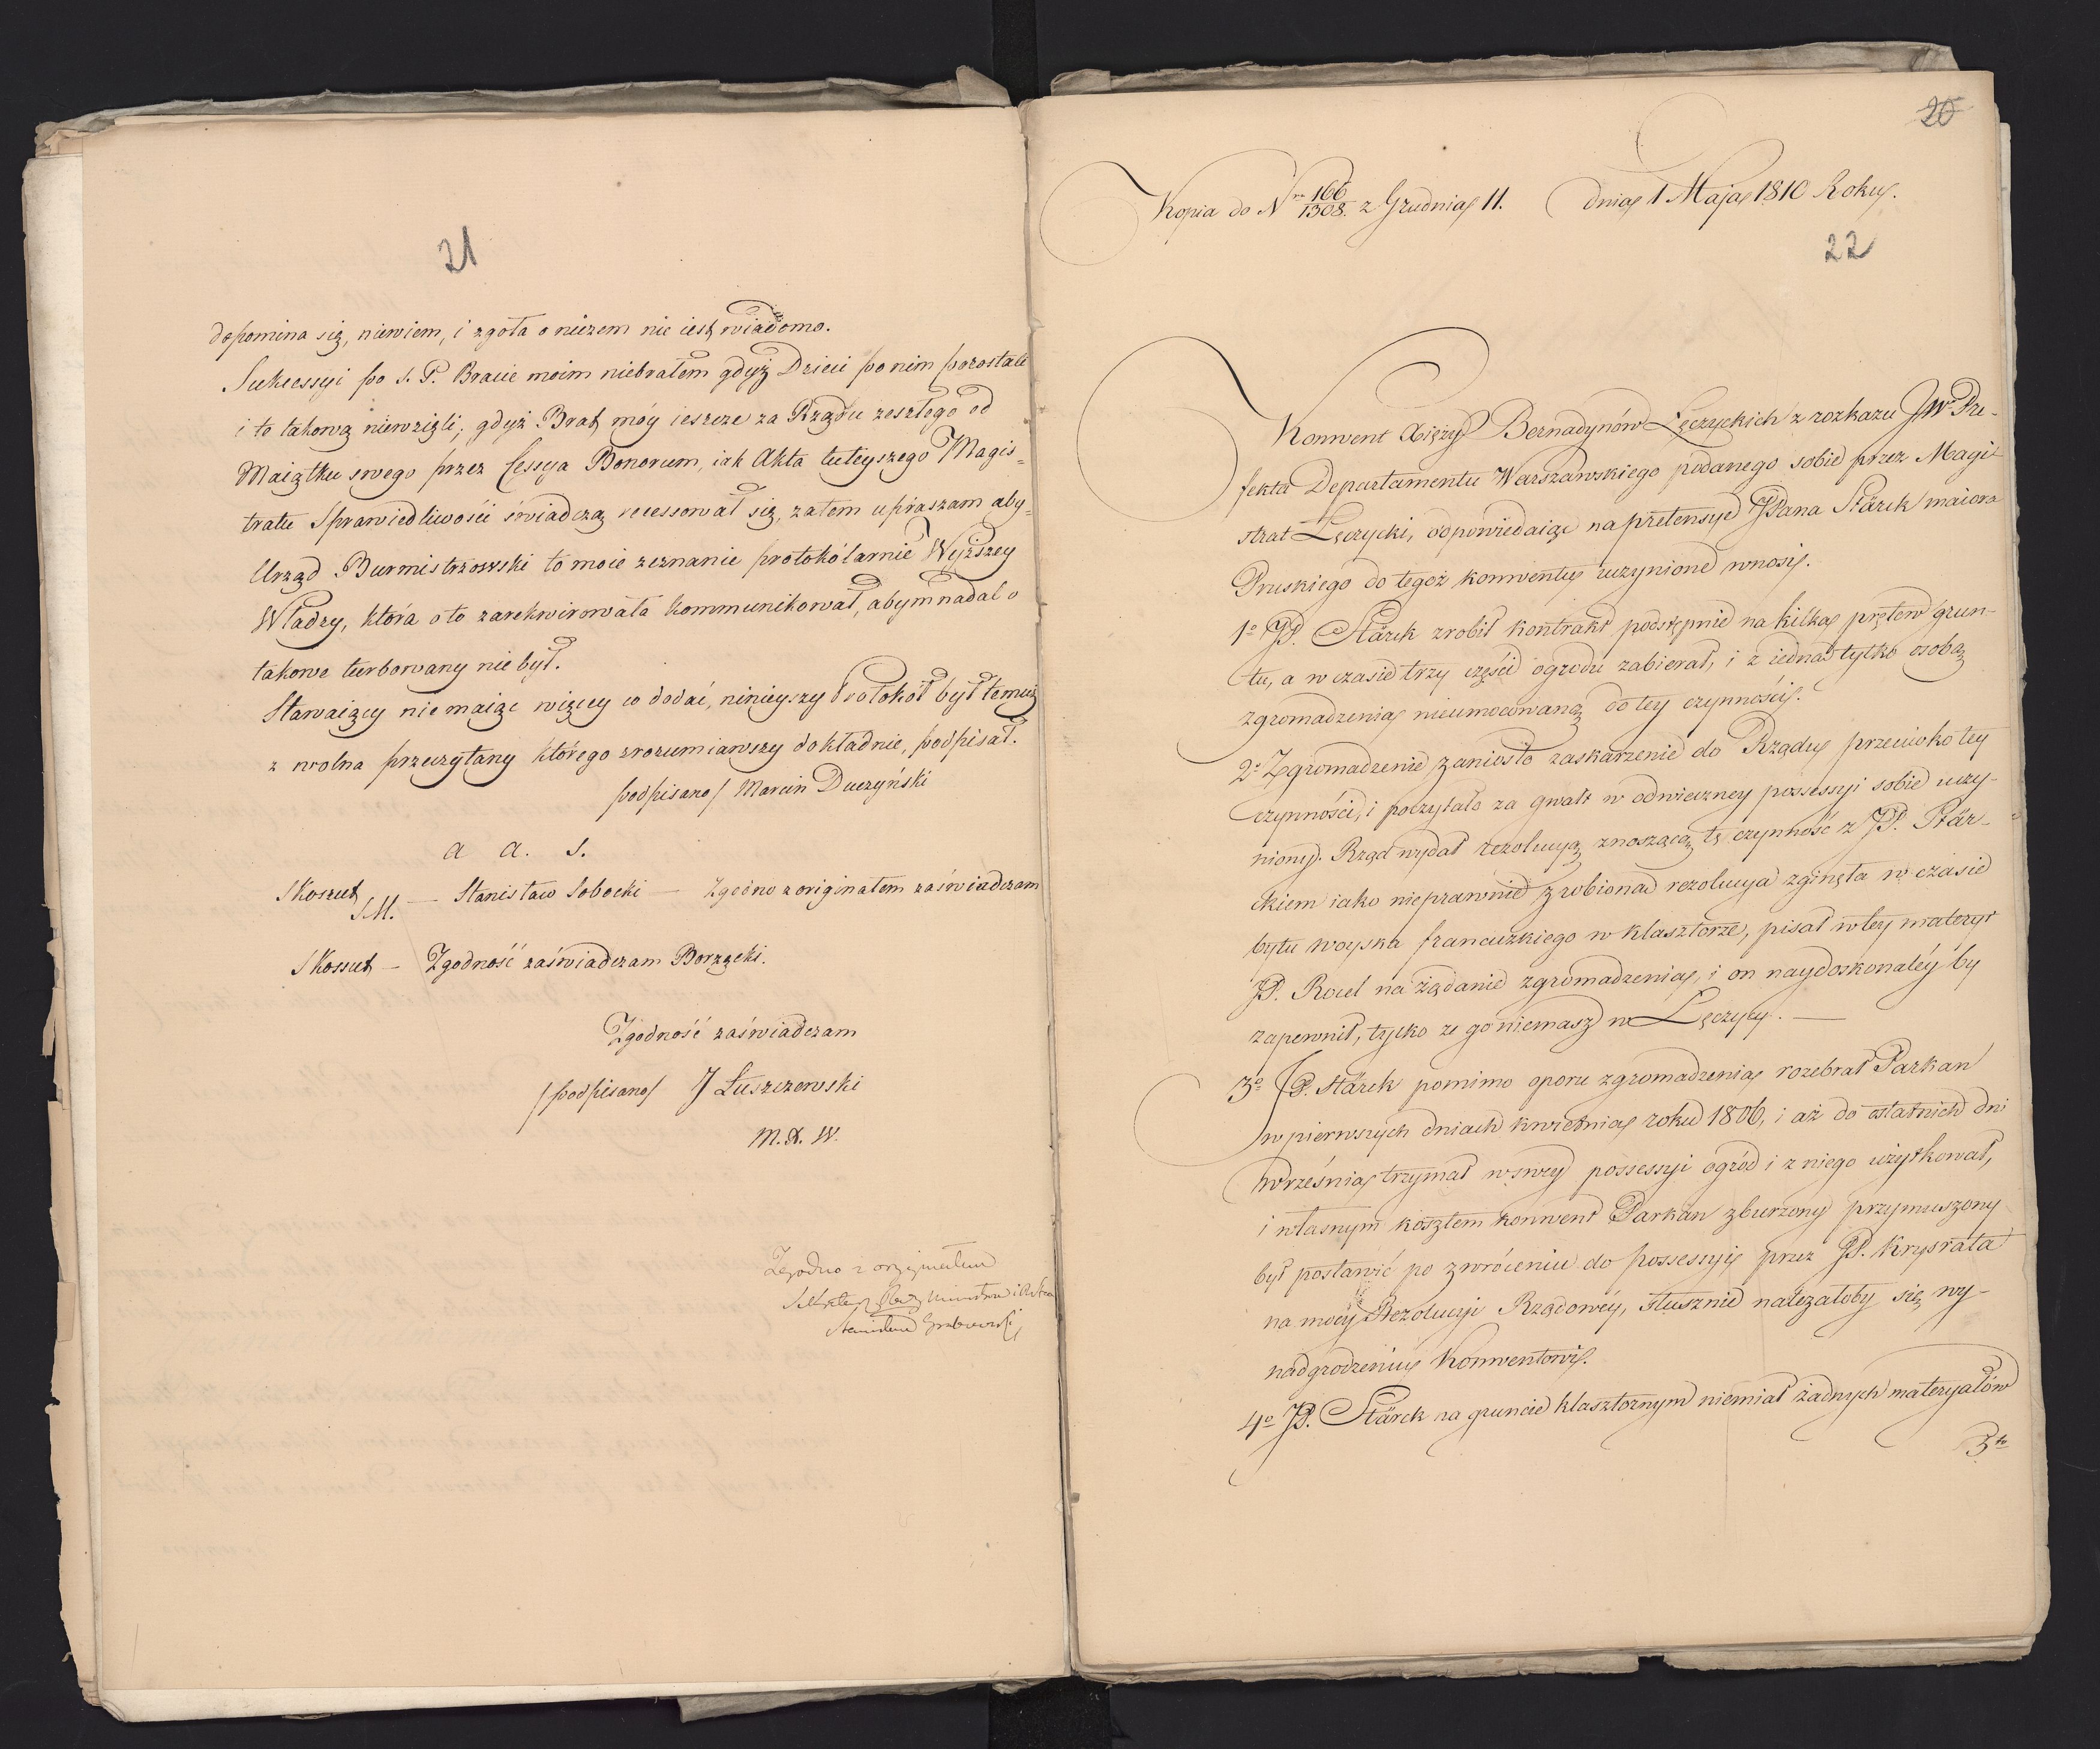 21
dopomina się, niewiem, i zgoła o niczem nie iest wiadomo.
Sukcessyi po ś. P. Bracie moim niebrałem gdyż Dzieci po nim pozostałe
i te takową niewzięli; gdyż Brat móy ieszcze za Rządu zeszłego od
Maiątku swego przez Cessya Bonorum, iak Akta tuteyszego Magis=
tratu Sprawiedliwości świadczą recessował się, zatem upraszam aby=
Urząd Burmistrzowski to moie zeznanie protokólarnie Wyższey
Władzy, która o to zarekwirowała kommunikował, abym nadal o
takowe turbowany nie był.
Stawaiący nie maiąc więcey co dodać, ninieyszy Protokół był temuż
z wolna przeczytany którego zrozumiawszy dokładnie, podpisał.
podpisano/ Marcin Duczyński
a a. s.
SKoszut — Stanisław Sobocki — Zgodno z originałem zaświadczam
S.M.
SKossut — Zgodność zaświadczam Borzęcki.
Zgodność zaświadczam
/podpisano/ J Łuszczewski
M.S.W.
Zgodno z oryginałem
Stanisław Grabowski
20
Kopia do Nro 166/1308. z Grudnia 11. dnia 1 Maja 1810 Roku.
22
Konwent Xięży Bernadynów Łęczyckich z rozkazu JW Pre-
fekta Departamentu Warszawskiego podanego sobie przez Magi-
strat Łęczycki, odpowiedaiąc na pretensye JPana Stärck maiora
Pruskiego do tegoż konwentu uczynione wnosi.
1o JP. Stärck zrobił kontrakt podstępnie na kilka prętow grun-
tu, a w czasie trzy części ogrodu zabierał, i z iedna tylko osobą
zgromadzenia nieumocowaną do tey czynności.
2o Zgromadzenie zaniosło zaskarzenie do Rządu przeciwko tey
czynności, i poczytało za gwałt w odwieczney possessyi sobie uczy-
niony. Rząd wydał rezolucyą znoszącą tę czynność z JP. Stär-
ckiem iako nieprawnie zrobiona rezolucya zginęła w czasie
bytu woyska francuzkiego w klasztorze, pisał w tey materyi
JP. Rocel na żądanie zgromadzenia, i on naydoskonaléy by
zapewnił, tylko że go niemasz w Łęczycy. —
3o JP. Stärck pomimo oporu zgromadzenia rozebrał Parkan
w pierwszych dniach kwietnia roku 1806, i aż do ostatnich dni
września trzymał w swey possessyi ogród i z niego użytkował,
i własnym kosztem konwent Parkan zburzony przymuszony
był postawić po zwróceniu do possessyi przez JP. Krypsrata
na mocy Rezolucyi Rządowéy, słusznie należałoby się wy-
nadgrodzeniu Konwentowi.
4o JP. Stärck na gruncie klasztornym niemiał żadnych materyałów
3to